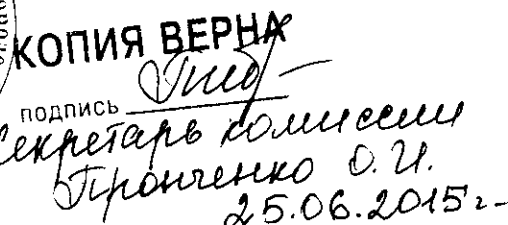 КОПИЯ ВЕРНА
подпись
Секретарь комиссии
Пронченко О.И.
25.06.2015г.